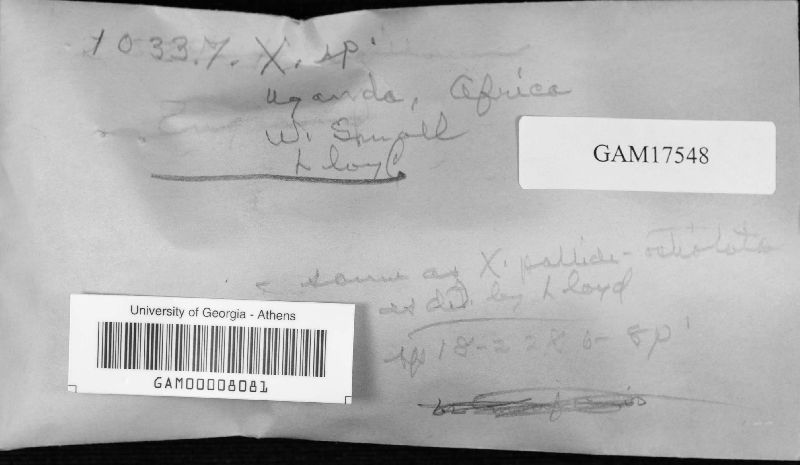 1033.7. X. sp.
Uganda, Africa
W. Small
Lloyd
GAM17548
same as X. pallide-
as det. by Lloyd
University of Georgia - Athens
GAM00008081
sp 18-22 x 6-8 µ